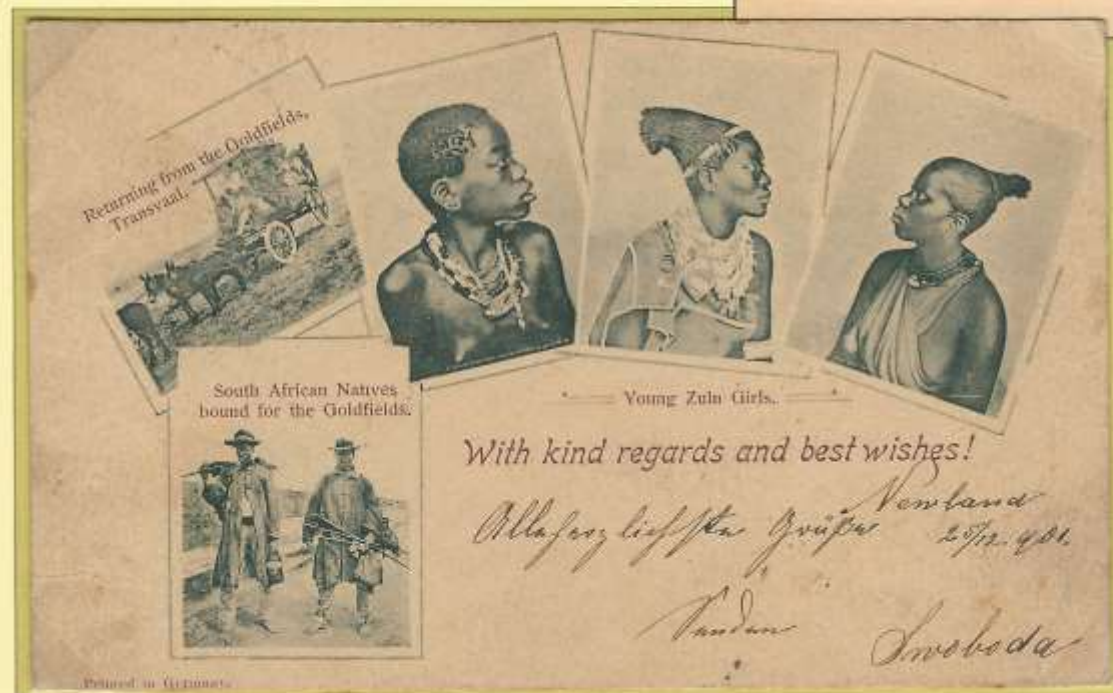 Returning from the Goldfields,
Transvaal.
South African Natives
bound for the Goldfields.
Young Zulu Girls.
With kind regards and best wishes!
Newland
Allerherzlichste Grüße 25/12. 901.
Senden
Swoboda
Printed in Germany.